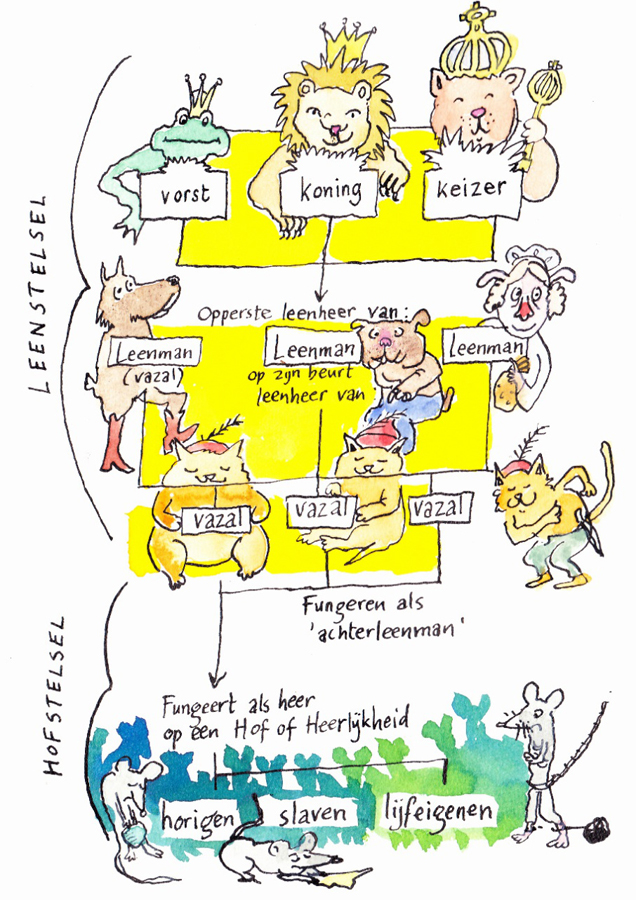 LEENSTELSEL
vorst
koning
keizer
Opperste leenheer van:
Leenman
(vazal)
Leenman
op zijn beurt
leenheer van:
Leenman
vazal
vazal
vazal
Fungeren als
'achterleenman'
HOFSTELSEL
Fungeert als heer
op een Hof of Heerlijkheid
horigen
slaven
lijfeigenen